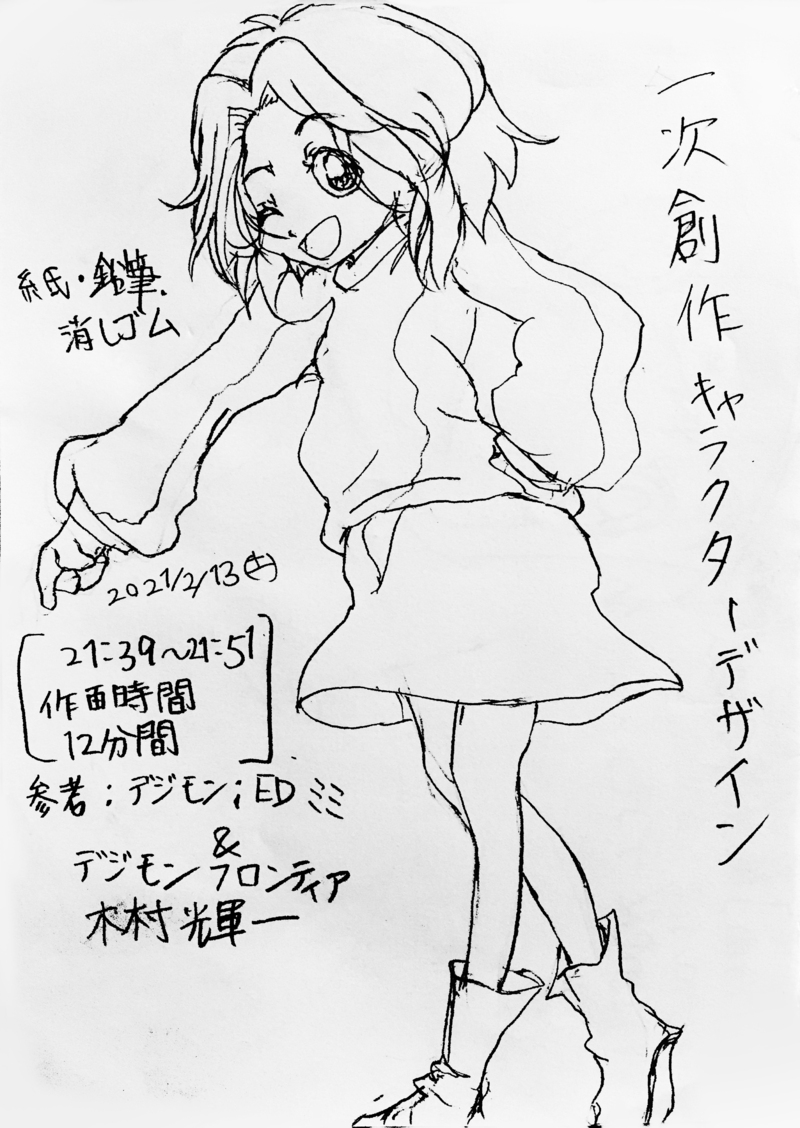 一次創作キャラクターデザイン
紙・鉛筆、
消しゴム
2021/2/13(土)
21:39〜21:51
作画時間
12分間
参考:デジモン;ED ミミ
&
デジモンフロンティア
木村輝一